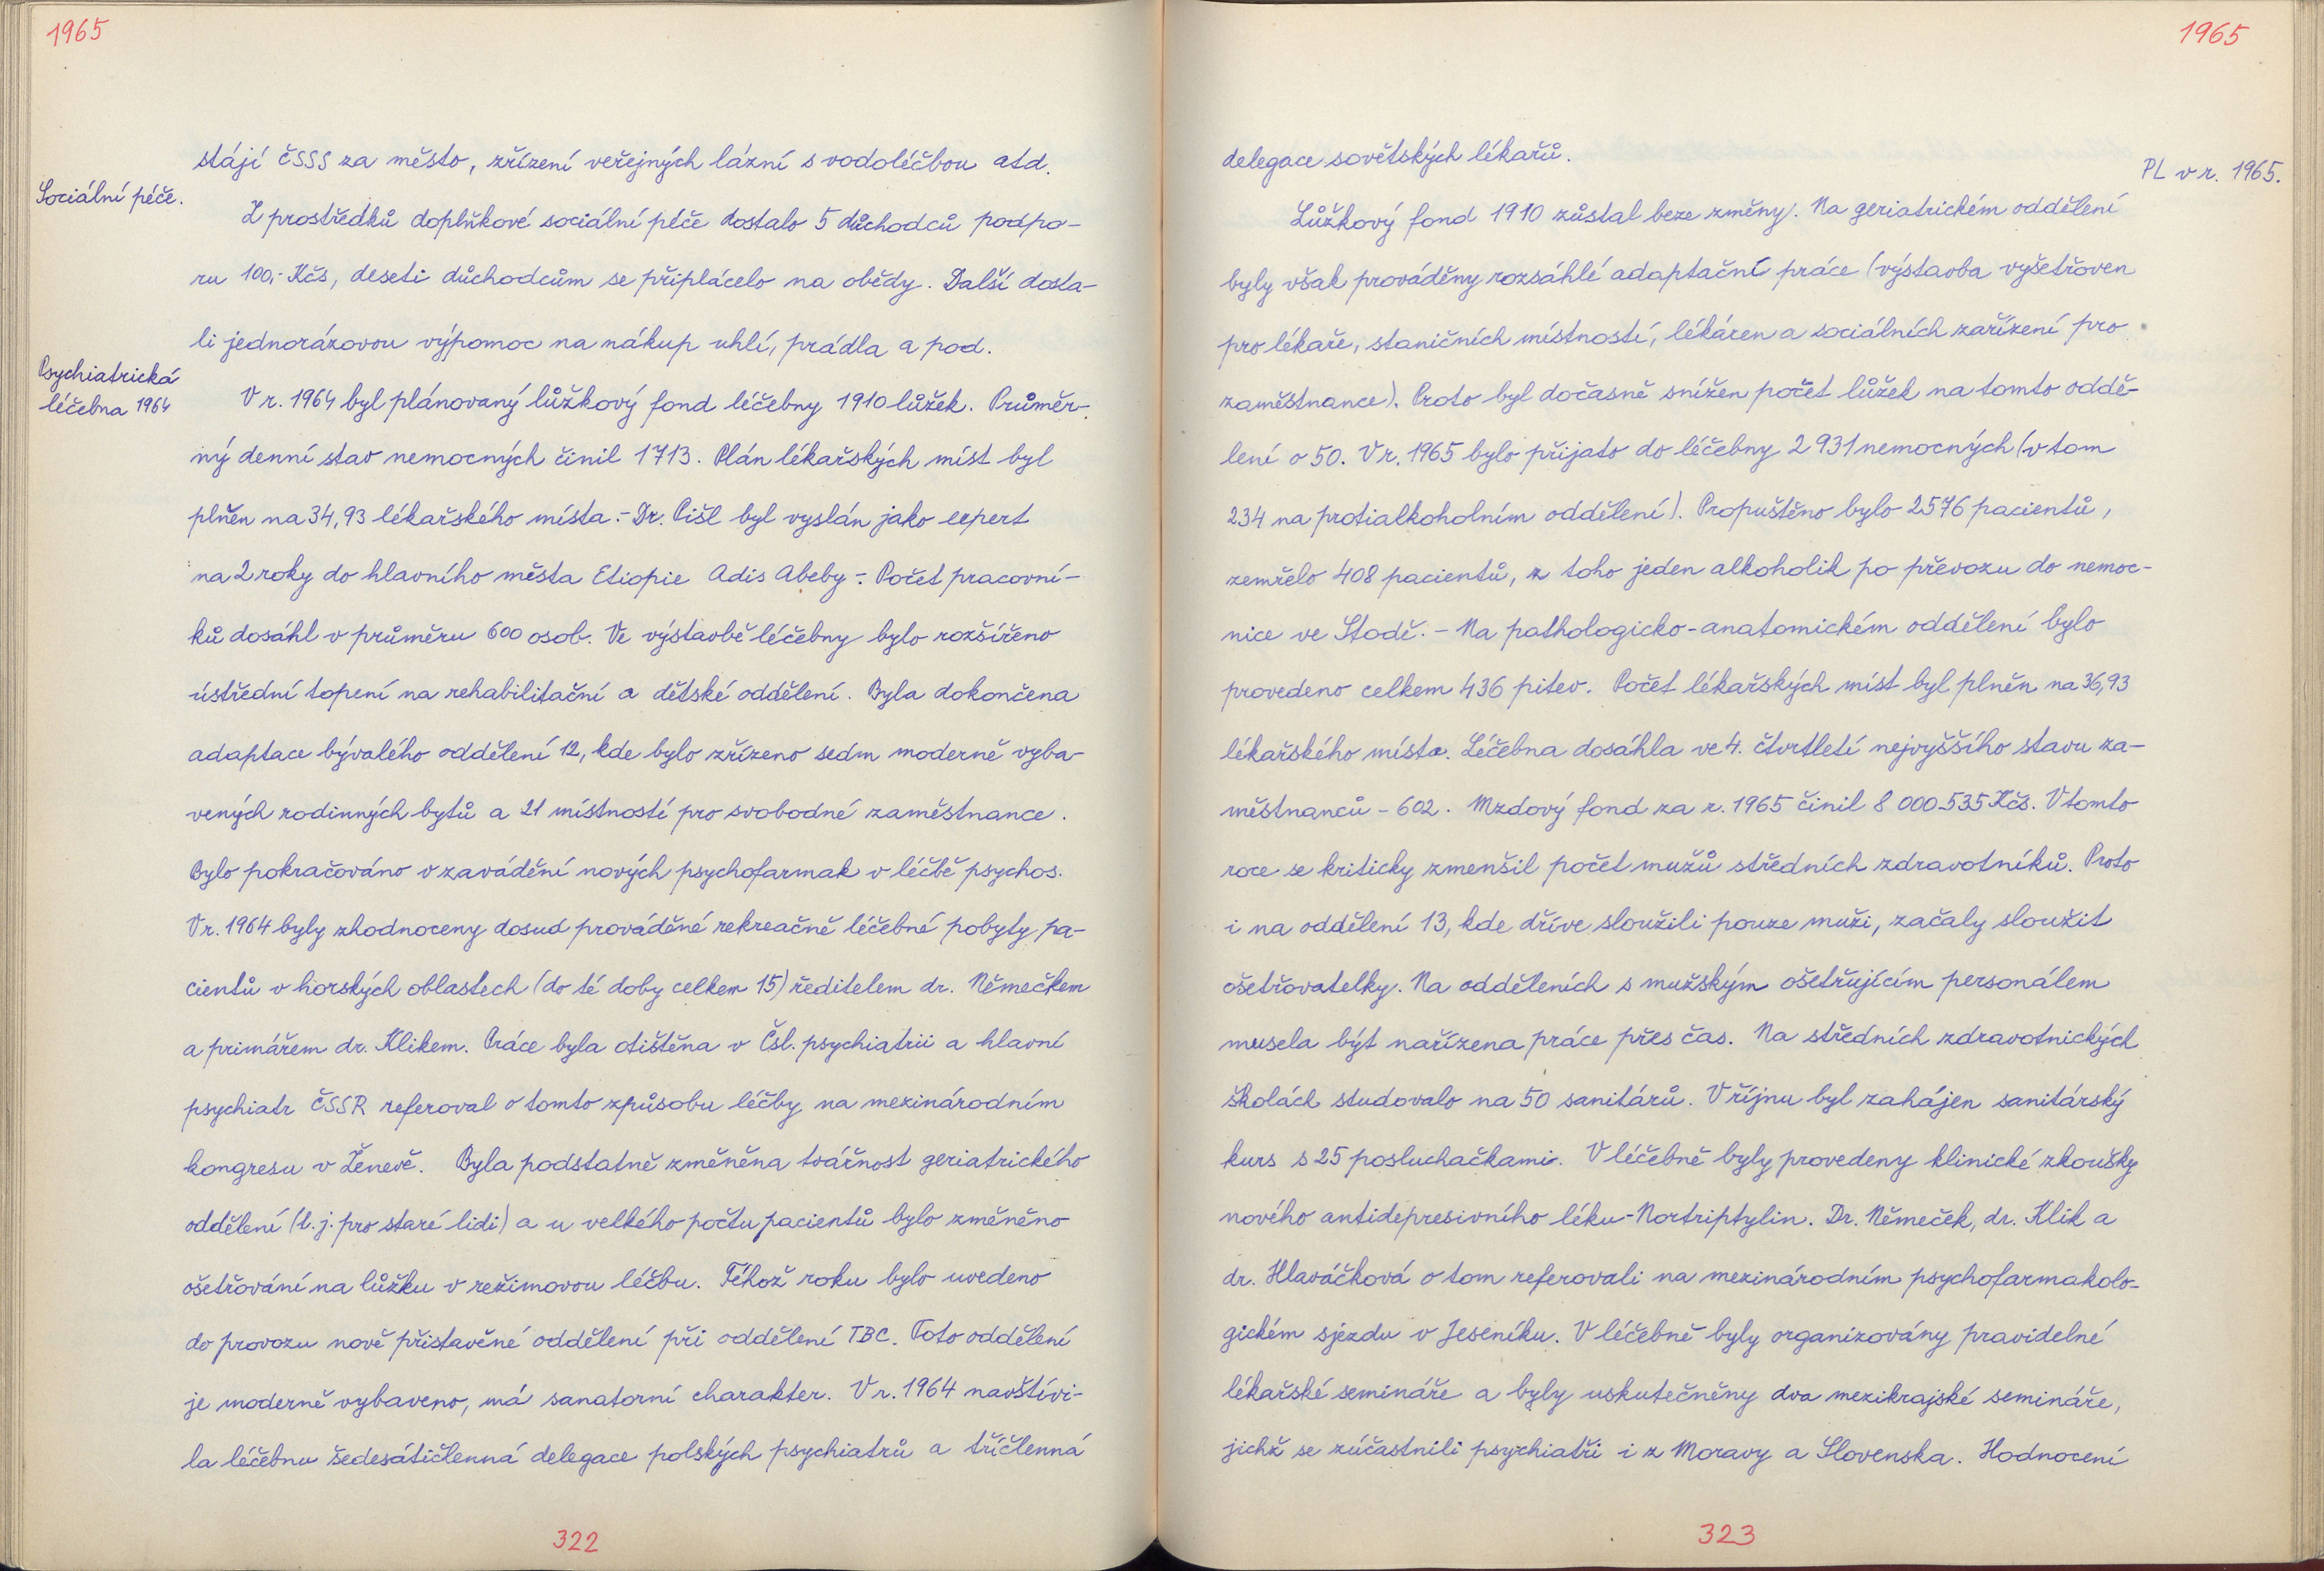 1965
stájí ČSSS za město, zřízení veřejných lázní s vodoléčbou atd.
Sociální péče.
Z prostředků doplňkové sociální péče dostalo 5 důchodců podpo-
ru 100,- Kčs, deseti důchodcům se připlácelo na obědy. Další dosta-
li jednorázovou výpomoc na nákup uhlí, prádla a pod.
Psychiatrická
léčebna 1964
V r. 1964 byl plánovaný lůžkový fond léčebny 1910 lůžek. Průměr-
ný denní stav nemocných činil 1713. Plán lékařských míst byl
plněn na 34,93 lékařského místa.- Dr. Pišl byl vyslán jako expert
na 2 roky do hlavního města Etiopie Adis Abeby -. Počet pracovní-
ků dosáhl v průměru 600 osob. Ve výstavbě léčebny bylo rozšířeno
ústřední topení na rehabilitační a dětské oddělení. Byla dokončena
adaptace bývalého oddělení 12, kde bylo zřízeno sedm moderně vyba-
vených rodinných bytů a 21 místností pro svobodné zaměstnance.
Bylo pokračováno v zavádění nových psychofarmak v léčbě psychos.
V r. 1964 byly zhodnoceny dosud prováděné rekreačně léčebné pobyty pa-
cientů v horských oblastech (do té doby celkem 15) ředitelem dr. Němečkem
a primářem dr. Klikem. Práce byla otištěna v Čsl. psychiatrii a hlavní
psychiatr ČSSR referoval o tomto způsobu léčby na mezinárodním
kongresu v Ženevě. Byla podstatně změněna tvářnost geriatrického
oddělení (t. j. pro staré lidi) a u velkého počtu pacientů bylo změněno
ošetřování na lůžku v režimovou léčbu. Téhož roku bylo uvedeno
do provozu nově přistavěné oddělení při oddělení TBC. Toto oddělení
je moderně vybaveno, má sanatorní charakter. V r. 1964 navštívi-
la léčebnu šedesátičlenná delegace polských psychiatrů a tříčlenná
322
1965
delegace sovětských lékařů.
PL v r. 1965.
Lůžkový fond 1910 zůstal beze změny. Na geriatrickém oddělení
byly však prováděny rozsáhlé adaptační práce (výstavba vyšetřoven
pro lékaře, staničních místností, lékáren a sociálních zařízení pro
zaměstnance). Proto byl dočasně snížen počet lůžek na tomto oddě-
lení o 50. V r. 1965 bylo přijato do léčebny 2 931 nemocných (v tom
234 na protialkoholním oddělení). Propuštěno bylo 2576 pacientů,
zemřelo 408 pacientů, z toho jeden alkoholik po převozu do nemoc-
nice ve Stodě. - Na pathologicko-anatomickém oddělení bylo
provedeno celkem 436 pitev. Počet lékařských míst byl plněn na 36,93
lékařského místa. Léčebna dosáhla ve 4. čtvrtletí nejvyššího stavu za-
městnanců - 602. Mzdový fond za r. 1965 činil 8 000 535 Kčs. V tomto
roce se kriticky zmenšil počet mužů středních zdravotníků. Proto
i na oddělení 13, kde dříve sloužili pouze muži, začaly sloužit
ošetřovatelky. Na odděleních s mužským ošetřujícím personálem
musela být nařízena práce přes čas. Na středních zdravotnických
školách studovalo na 50 sanitárů. V říjnu byl zahájen sanitárský
kurs s 25 posluchačkami. V léčebně byly provedeny klinické zkoušky
nového antidepresivního léku - Nortriptylin. Dr. Němeček, dr. Klik a
dr. Hlaváčková o tom referovali na mezinárodním psychofarmakolo-
gickém sjezdu v Jeseníku. V léčebně byly organizovány pravidelné
lékařské semináře a byly uskutečněny dva mezikrajské semináře,
jichž se zúčastnili psychiatři i z Moravy a Slovenska. Hodnocení
323